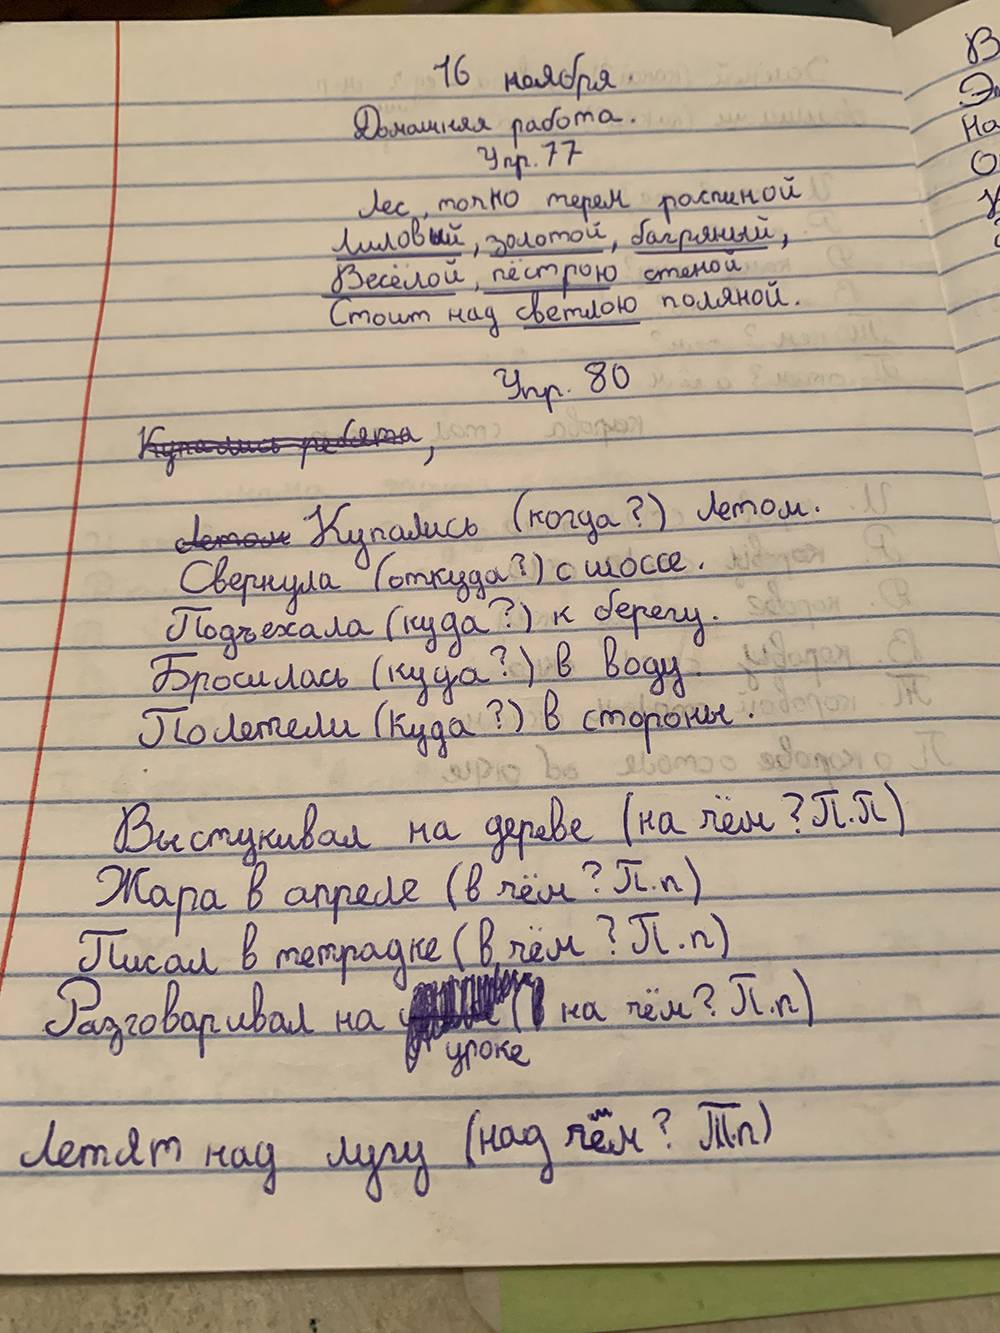 16 ноября
Домашняя работа.
Упр. 77
Лес, точно терем росписной
Лиловый, золотой, багряный,
Весёлой, пёстрою стеной
Стоит над светлою поляной.
Упр. 80
Купались ребята,
Летом Купались (когда?) летом.
Свернула (откуда?) с шоссе.
Подъехала (куда?) к берегу.
Бросилась (куда?) в воду.
Полетели (куда?) в стороны.
Выстукивал на дереве (на чём? П.П)
Жара в апреле (в чём? П.п)
Писал в тетрадке (в чём? П.п)
Разговаривал на (на чём? П.п)
уроке
Летят над лугу (над чем? Т.п)